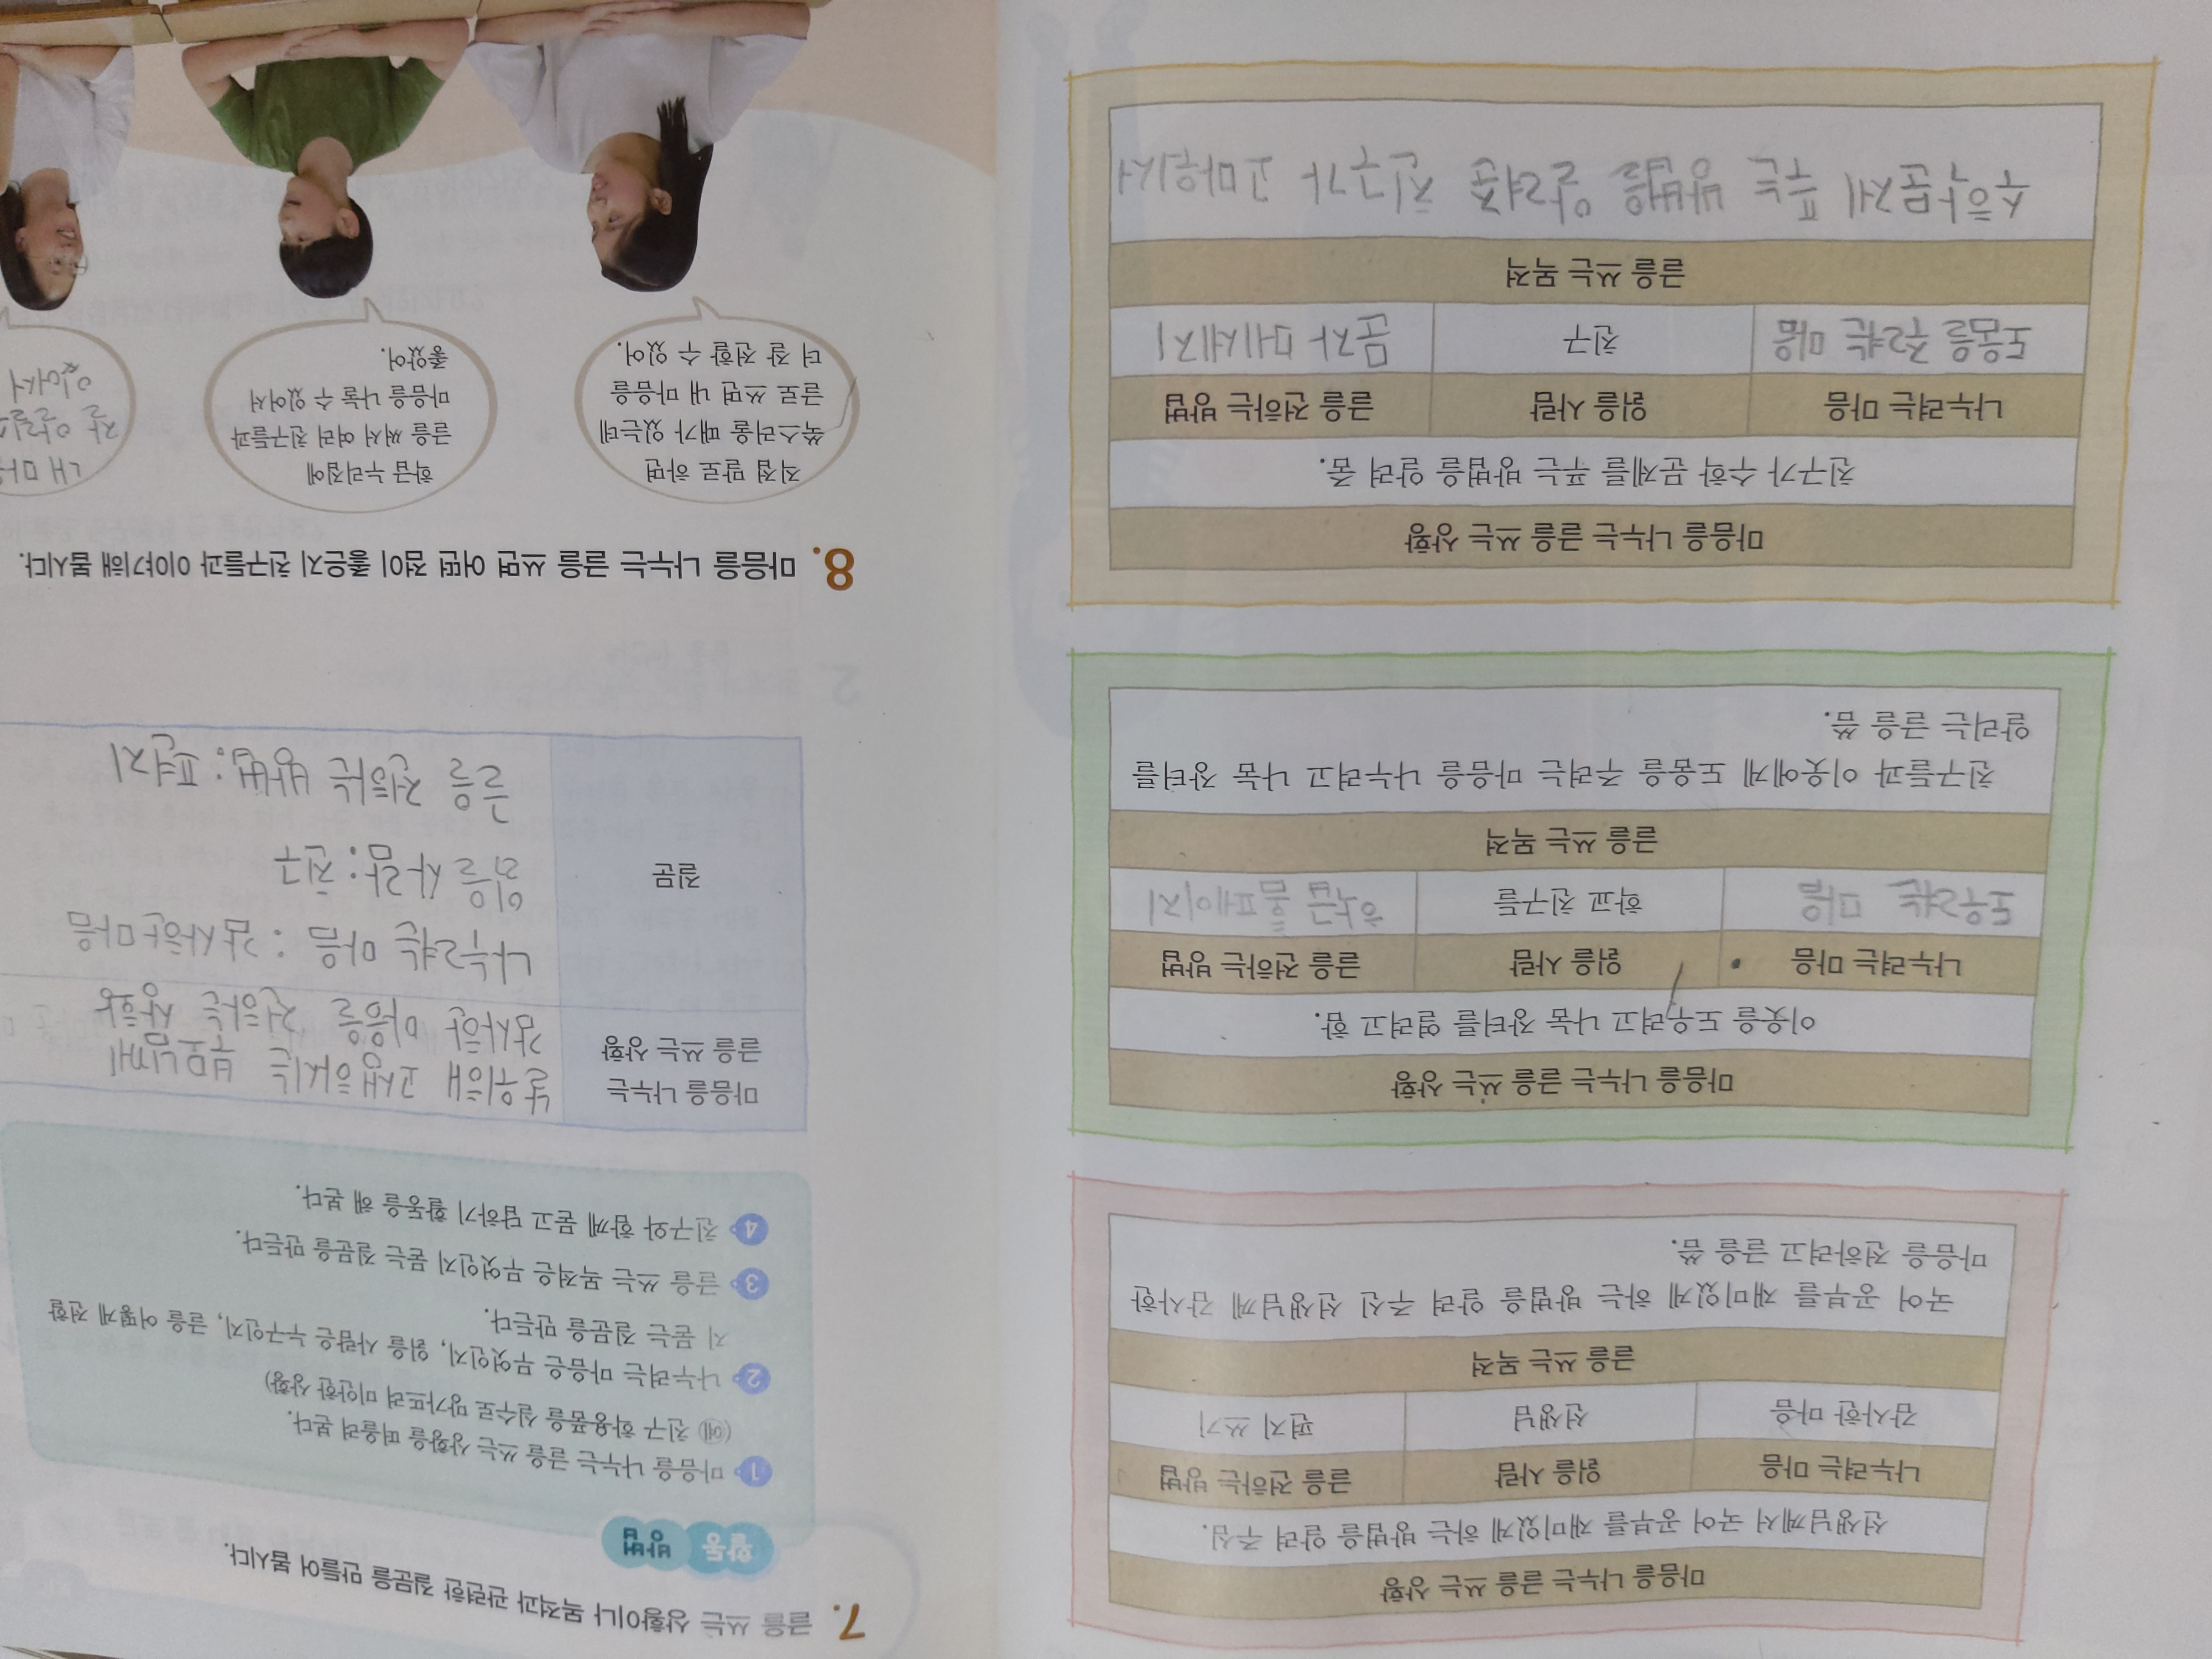 마음을 나누는 글을 쓰는 상황
선생님께서 국어 공부를 재미있게 하는 방법을 알려 주심.
나누려는 마음 읽을 사람 글을 전하는 방법
감사한 마음 선생님 편지 쓰기
글을 쓰는 목적
국어 공부를 재미있게 하는 방법을 알려 주신 선생님께 감사한
마음을 전하려고 글을 씀.
마음을 나누는 글을 쓰는 상황
이웃을 도우려고 나눔 장터를 열려고 함.
나누려는 마음 읽을 사람 글을 전하는 방법
도우려는 마음 학교 친구들 학급 홈페이지
글을 쓰는 목적
친구들과 이웃에게 도움을 주려는 마음을 나누려고 나눔 장터를
알리는 글을 씀.
마음을 나누는 글을 쓰는 상황
친구가 수학 문제를 푸는 방법을 알려 줌.
나누려는 마음 읽을 사람 글을 전하는 방법
도움을 주려는 마음 친구 문자 메세지
글을 쓰는 목적
수학 문제 푸는 방법을 알려준 친구가 고마워서
7. 글을 쓰는 상황이나 목적과 관련한 질문을 만들어 봅시다.
활동 방법
1 마음을 나누는 글을 쓰는 상황을 떠올려 본다.
(예 친구 학용품을 실수로 망가뜨려 미안한 상황)
2 나누려는 마음은 무엇인지, 읽을 사람은 누구인지, 글을 어떻게 전할
지 묻는 질문을 만든다.
3 글을 쓰는 목적은 무엇인지 묻는 질문을 만든다.
4 친구와 함께 묻고 답하기 활동을 해 본다.
마음을 나누는
글을 쓰는 상황
날 위해 고생하시는 부모님께
감사한 마음을 전하는 상황
질문
나누려는 마음 : 감사한 마음
읽을 사람 : 친구
글을 전하는 방법 : 편지
8. 마음을 나누는 글을 쓰면 어떤 점이 좋은지 친구들과 이야기해 봅시다.
직접 말로 하면
쑥스러울 때가 있는데
글로 쓰면 내 마음을
더 잘 전할 수 있어.
학급 누리집에
글을 써서 여러 친구들과
마음을 나눌 수 있어서
좋았어.
내 마
잘 알릴
있어서